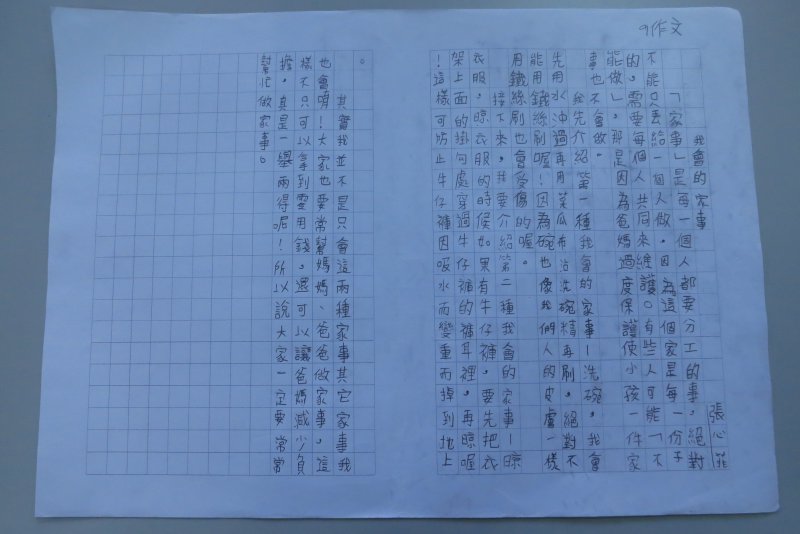 9作文
我會的家事
張心菲
「家事」是每一個人都要分工的事,絕對
不能只丟給一個人做,因為這個家是每一份子
的,需要每個人共同來維護。有些人可能「不
能做」,那是因為爸媽過度保護使小孩一件家
事也不會做。
我先介紹第一種我會的家事—洗碗,我會
先用水沖過再用菜瓜布沾洗碗精再刷,絕對不
能用鐵絲刷喔!因為碗也像我們人的皮膚一樣
用鐵絲刷也會受傷的喔。
接下來,我要介紹第二種我會的家事—晾
衣服,晾衣服的時候如果有牛仔褲,要先把衣
架上面的掛勾處穿過牛仔褲的褲耳裡,再晾喔
!這樣可防止牛仔褲因吸水而變重而掉到地上
。
其實我並不是只會這兩種家事其它家事我
也會唷!大家也要常幫媽媽、爸爸做家事,這
樣不只可以拿到零用錢,還可以讓爸媽減少負
擔,真是一舉兩得呢!所以說大家一定要常常
幫忙做家事。